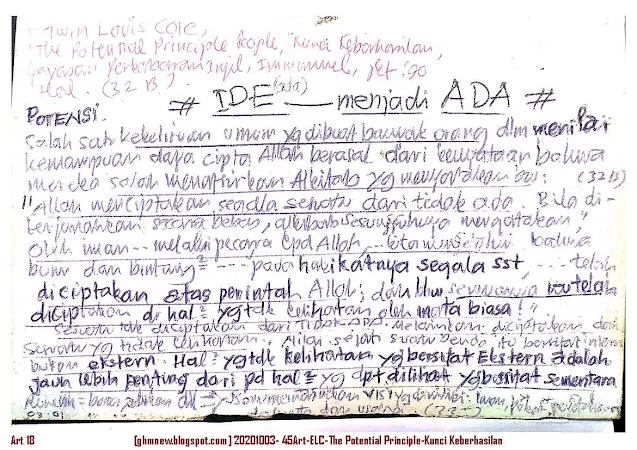 Edwin Louis Cole,
"The Potential Principle People, Kunci Keberhasilan,
Yayasan Perkabaran Injil, Immanuel, Jkt. '90
Hal. (32 B.)
# IDE (ada) — menjadi ADA #
POTENSI.
Salah satu kekeliruan umum yg dibuat banyak orang dlm menilai
kemampuan daya cipta Allah berasal dari kenyataan bahwa
mereka salah menafsirkan Alkitab yg menyatakan bw: (32 B)
"Allah menciptakan segala sesuatu dari tidak ada. Bila di-
terjemahkan secara bebas, Alkitab sesungguhnya mengatakan,"
Oleh iman -- melalui percaya kpd Allah, kita mengetahui bahwa
bumi dan bintang² ---- pada hakikatnya segala sst, .... telah
diciptakan atas perintah Allah; dan bhw semuanya itu telah
diciptakan dr hal² yg tdk kelihatan oleh mata biasa!"
Sesuatu tdk diciptakan dari TIDAK ADA melainkan diciptakan dari
sesuatu yg tidak kelihatan. Nilai sejati suatu benda itu bersifat intern
bukan ekstern. Hal² yg tdk kelihatan yg bersifat Ekstern adalah
jauh lebih penting dari pd hal² yg dpt dilihat yg bersifat sementara
visi
(32 I)
Art 18 [ghmnew.blogspot.com] 20201003- 45Art-ELC-The Potential Principle-Kunci Keberhasilan